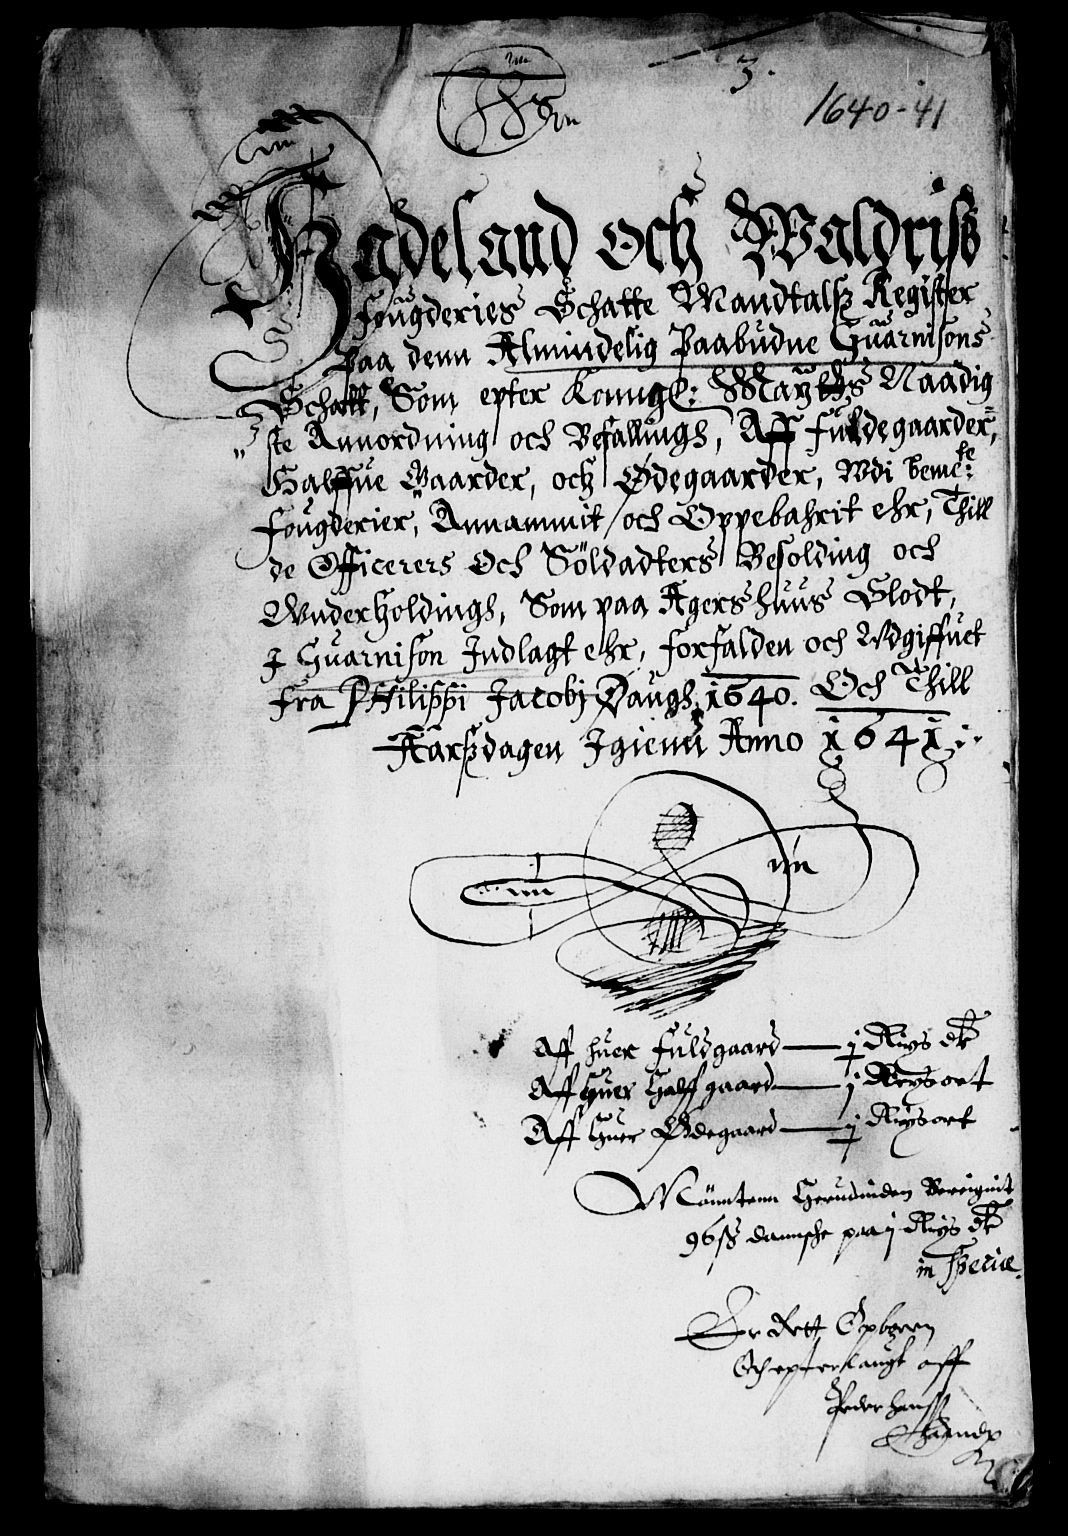 3.
1640-41
Hadeland och Waldriss
fougderies Schatte Mandtalss Register
paa denn Almindelig Paabudne Guarnisons
Schatt, Som epter Konngl: Maytts Naadig
ste Annordning och Befallings, Aff fuldegaarder,
Halffue Gaarder, och Ødegaarder, Wdi bemelte
fougderier, Annammit och Oppebahrit ehr, Thill
de Officerers Och Söldadters Besolding och
Wnderholdings, Som paa Agershuus Slodt,
J Guarnison Indlagt ehr, forfalden och Vdgiffuet
fra Philippi Jacobj Daugh 1640. Och Thill
Aarssdagen Jgienn Anno 1641
Aff huer fuldgaard — j Riys dr
Aff huer halff gaard — j Rrys ort
Aff huer Ødegaard — j Riys ort
Mönnten Herudinden Bereignit
96 ss dannsche paa j Riys dr
in Specie.
Er Rett Opboren
Och epterlaugt aff
Peder hanss